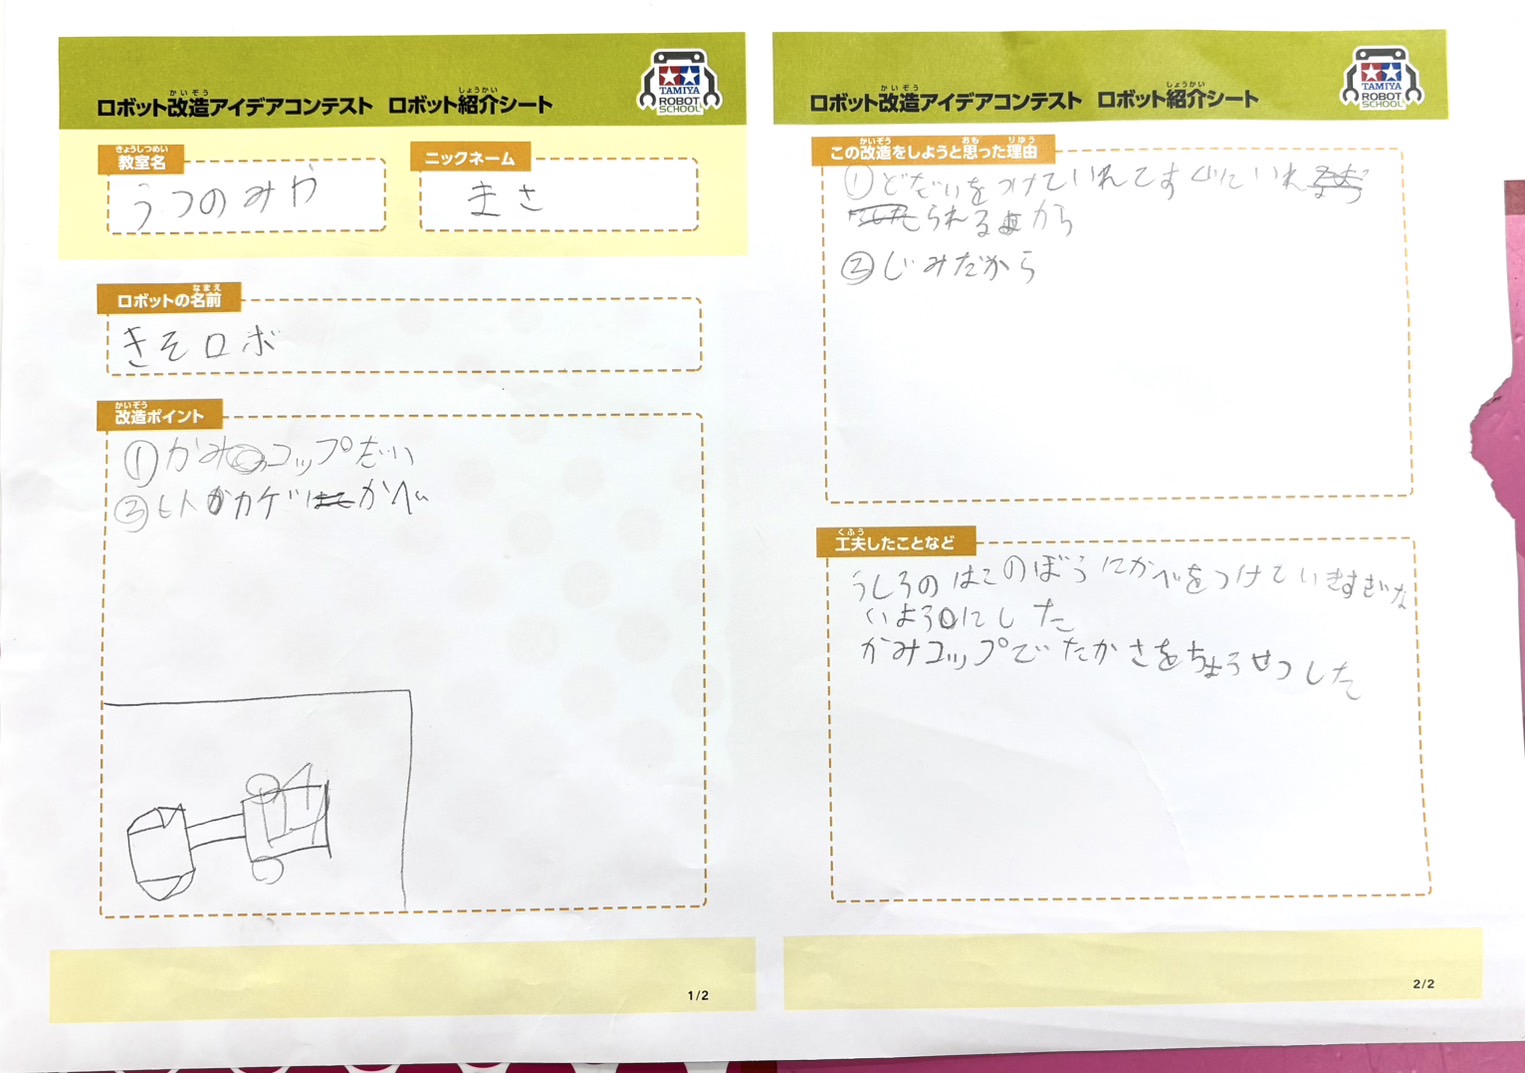 ロボット改造アイデアコンテスト ロボット紹介シート
かいぞう しょうかい
TAMIYA
ROBOT
SCHOOL
きょうしつめい
教室名
うつのみや
ニックネーム
まさ
なまえ
ロボットの名前
きそロボ
かいぞう
改造ポイント
①かみのコップだい
②
かべ
1/2
ロボット改造アイデアコンテスト ロボット紹介シート
かいぞう しょうかい
TAMIYA
ROBOT
SCHOOL
かいぞう おも りゆう
この改造をしようと思った理由
①どだいをつけていれてすぐにいれ
られるから
②じみだから
くふう
工夫したことなど
うしろのはこのぼうにかべをつけていきすぎな
いようにした
かみコップでたかさをちょうせつした
2/2